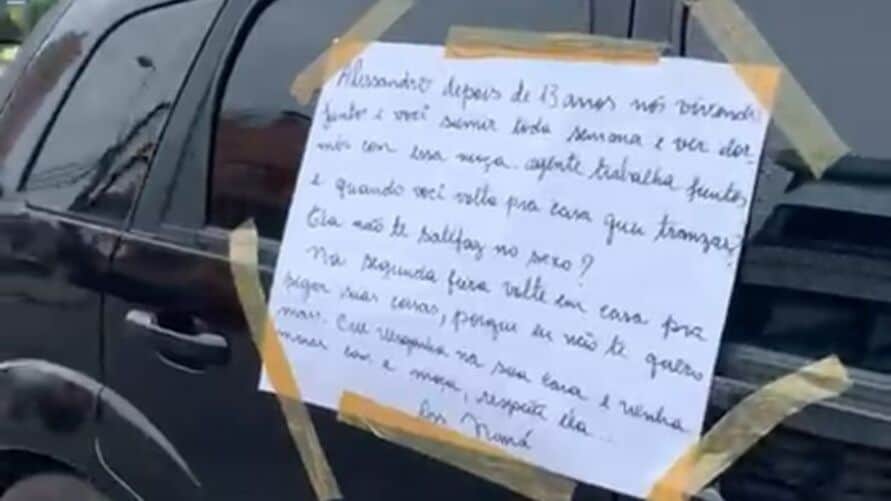 Alessandro depois de 13 anos nós vivendo
junto e você sumir toda semana e ver dor
mós con essa moça. agente trabalha juntos
e quando você volta pra casa quer tranzar?
Ela não te satifaz no sexo?
Na segunda feira volte em casa pra
pegar suas coisas, porque eu não te quero
mais. Crie vergonha na sua cara e venha
morar con a moça, respeite ela...